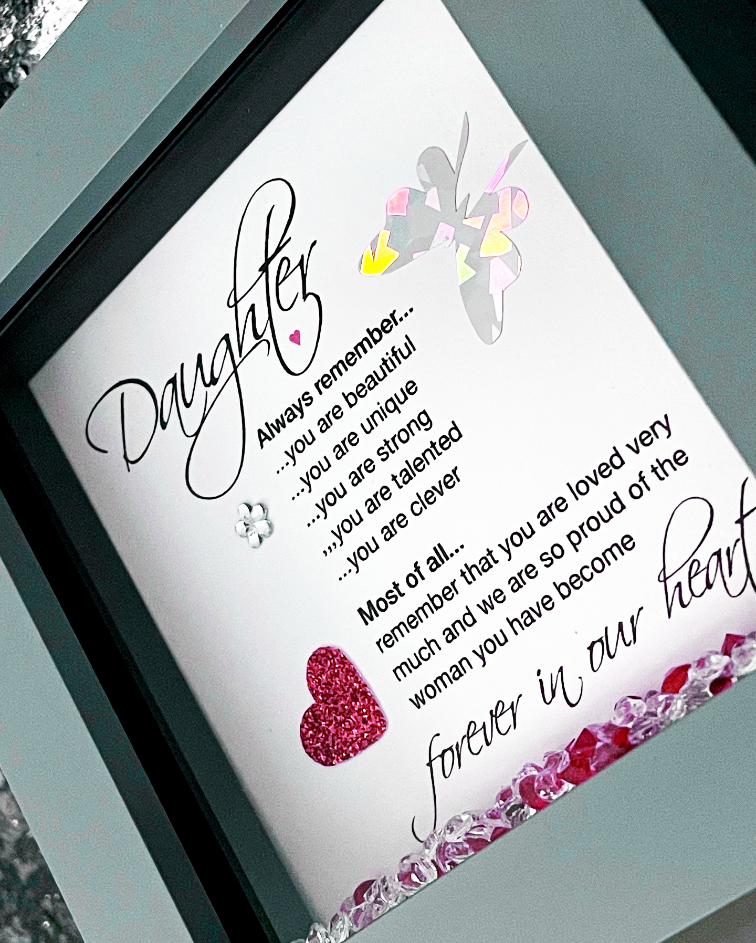 Daughter
Always remember...
...you are beautiful
...you are unique
...you are strong
,,,you are talented
...you are clever
Most of all...
remember that you are loved very
much and we are so proud of the
woman you have become
forever in our heart